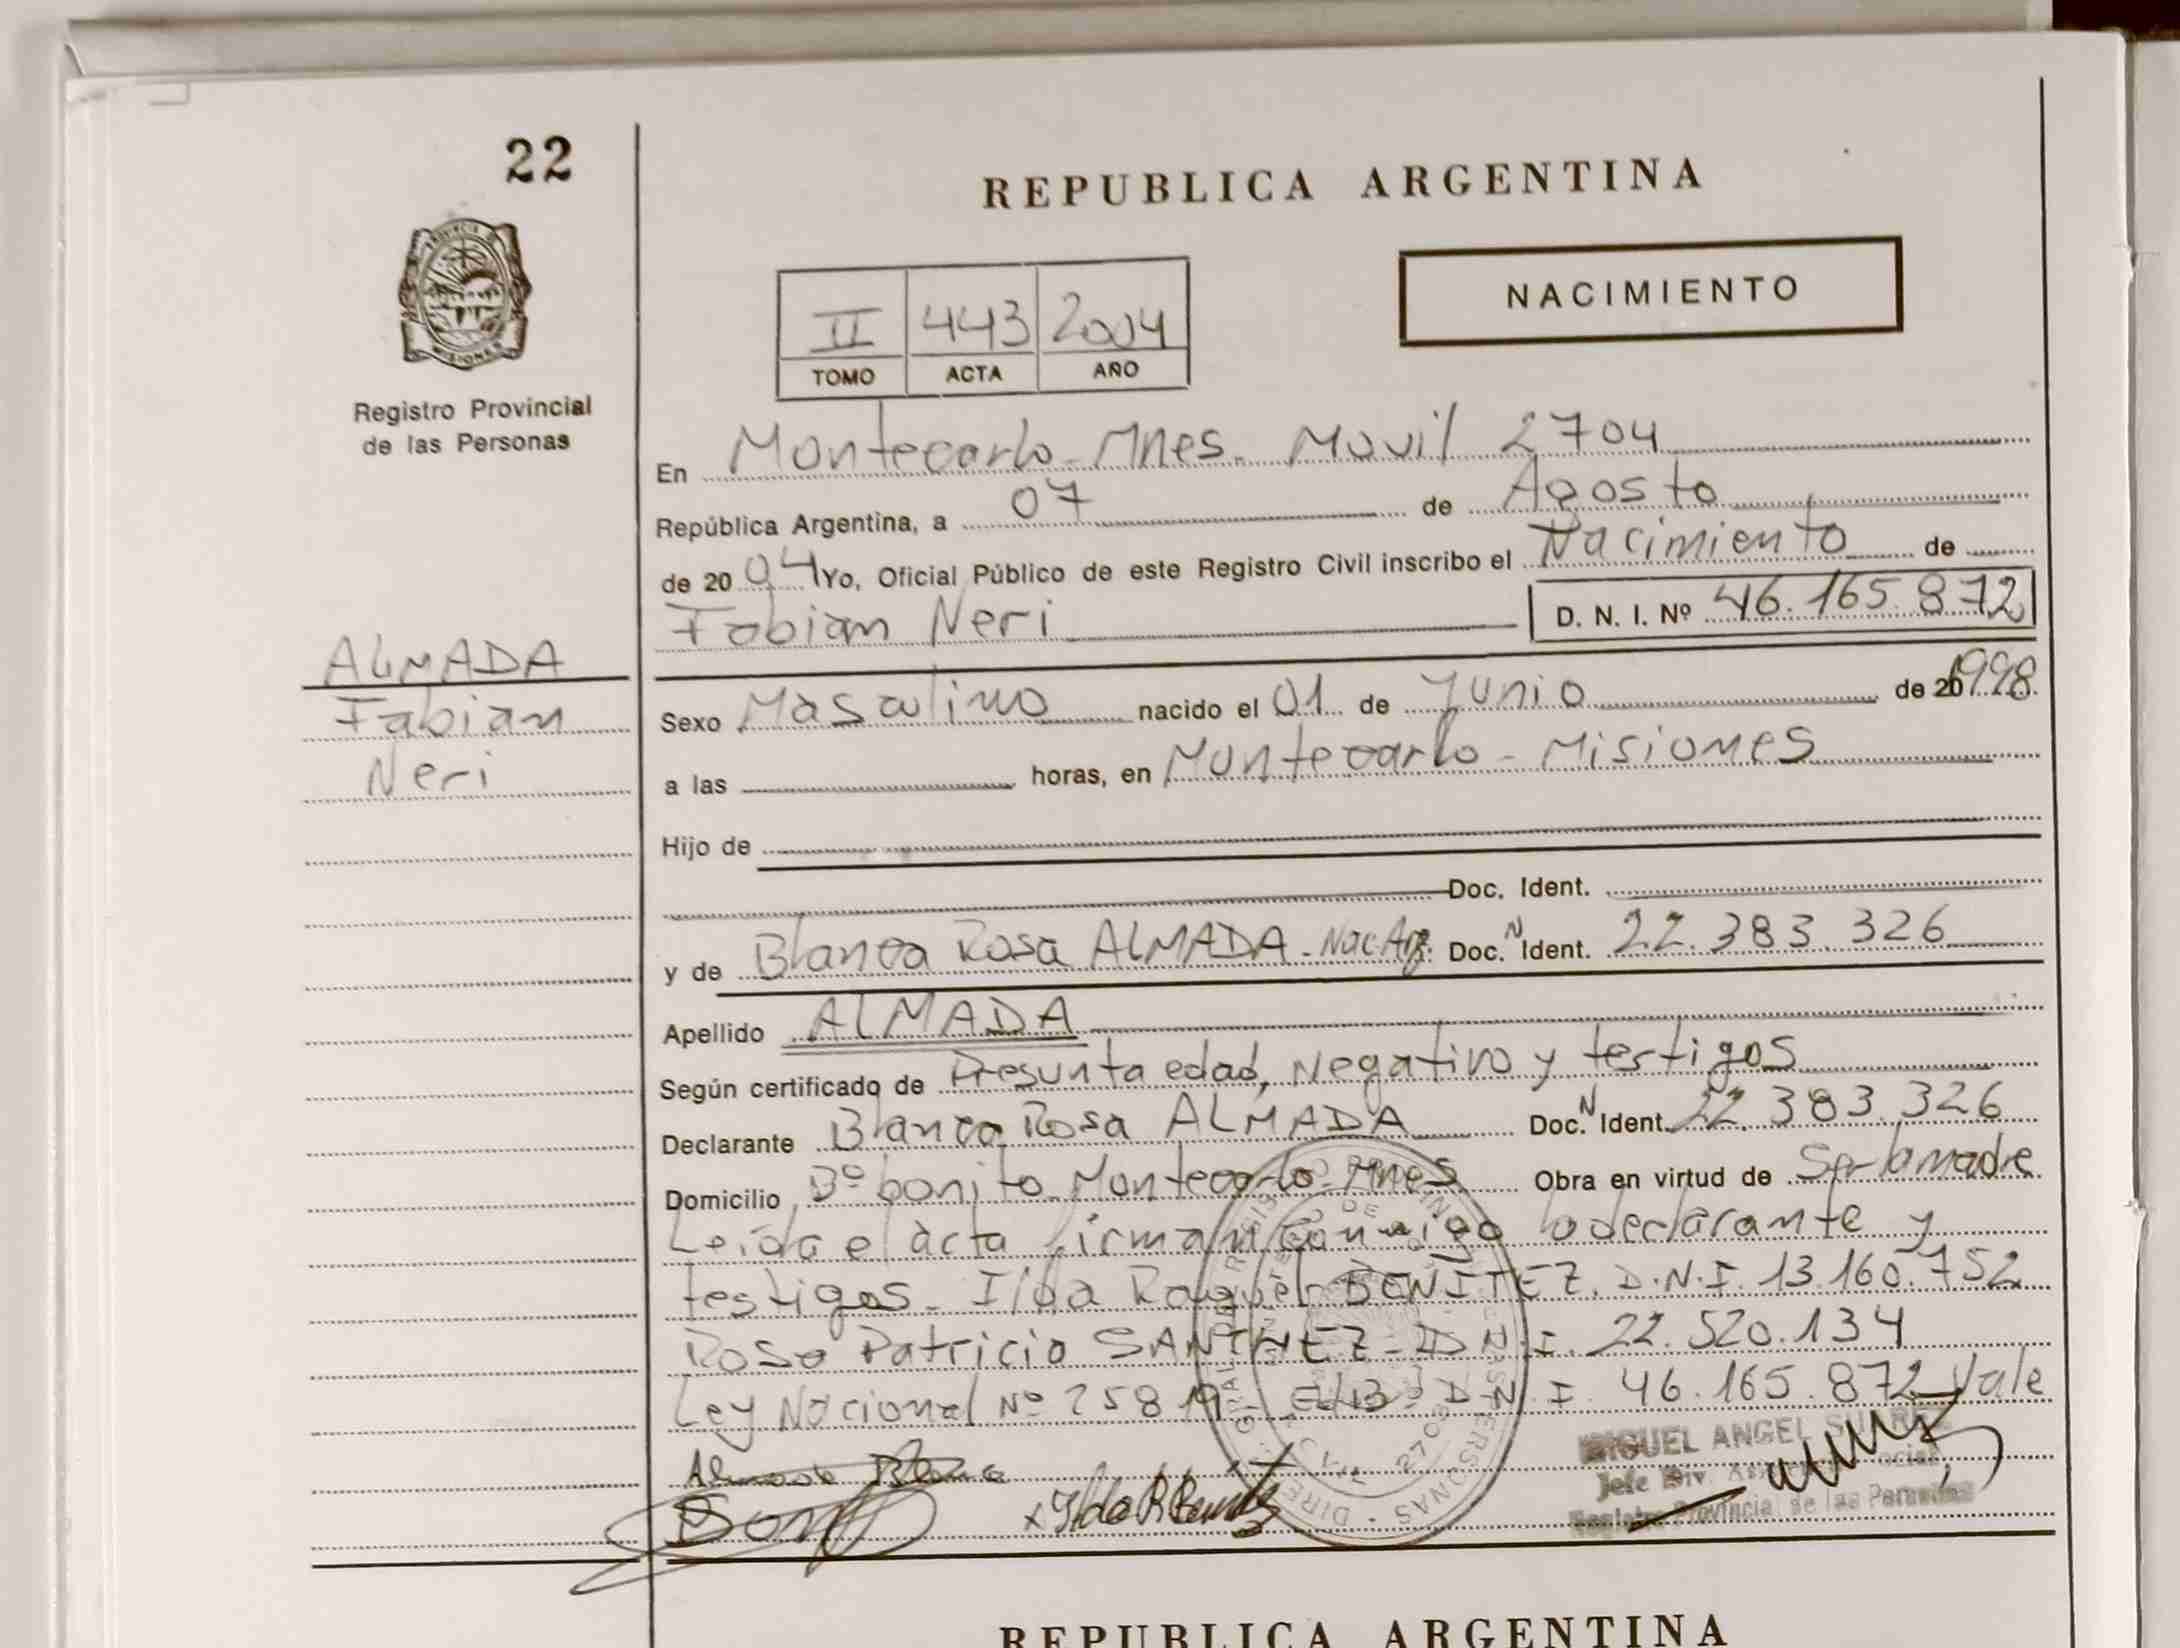 22
REPUBLICA ARGENTINA
PROVINCIA DE
MISIONES
Registro Provincial
de las Personas
II 443 2004
TOMO ACTA AÑO
NACIMIENTO
En Montecarlo - Mnes. Movil 2704
República Argentina, a 07 de Agosto
de 2004 Yo, Oficial Público de este Registro Civil inscribo el Nacimiento de
Fabian Neri D. N. I. Nº 46.165.872
ALMADA
Fabian
Neri
Sexo Masculino nacido el 01 de Junio de 20 1998
a las horas, en Montecarlo - Misiones
Hijo de
Doc. Ident.
y de Blanca Rosa ALMADA - Nac. Arg. Doc. N Ident. 22.383.326
Apellido ALMADA
Según certificado de Presunta edad, Negativo y testigos
Declarante Blanca Rosa ALMADA Doc. N Ident. 22.383.326
Domicilio Bº bonito Montecarlo - Mnes Obra en virtud de Ser la madre
Leida el acta firman conmigo la declarante y
testigos - Ilda Raquel BENITEZ. D.N.I. 13.160.752
Patricio D N I. 22.520.134
Ley Nacional Nº 25819 D.N.I. 46.165.872 Vale
Almada Blanca
x Ilda R Benitez
MIGUEL ANGEL
Jefe Div.
Registro Provincial de las Personas
REPUBLICA ARGENTINA